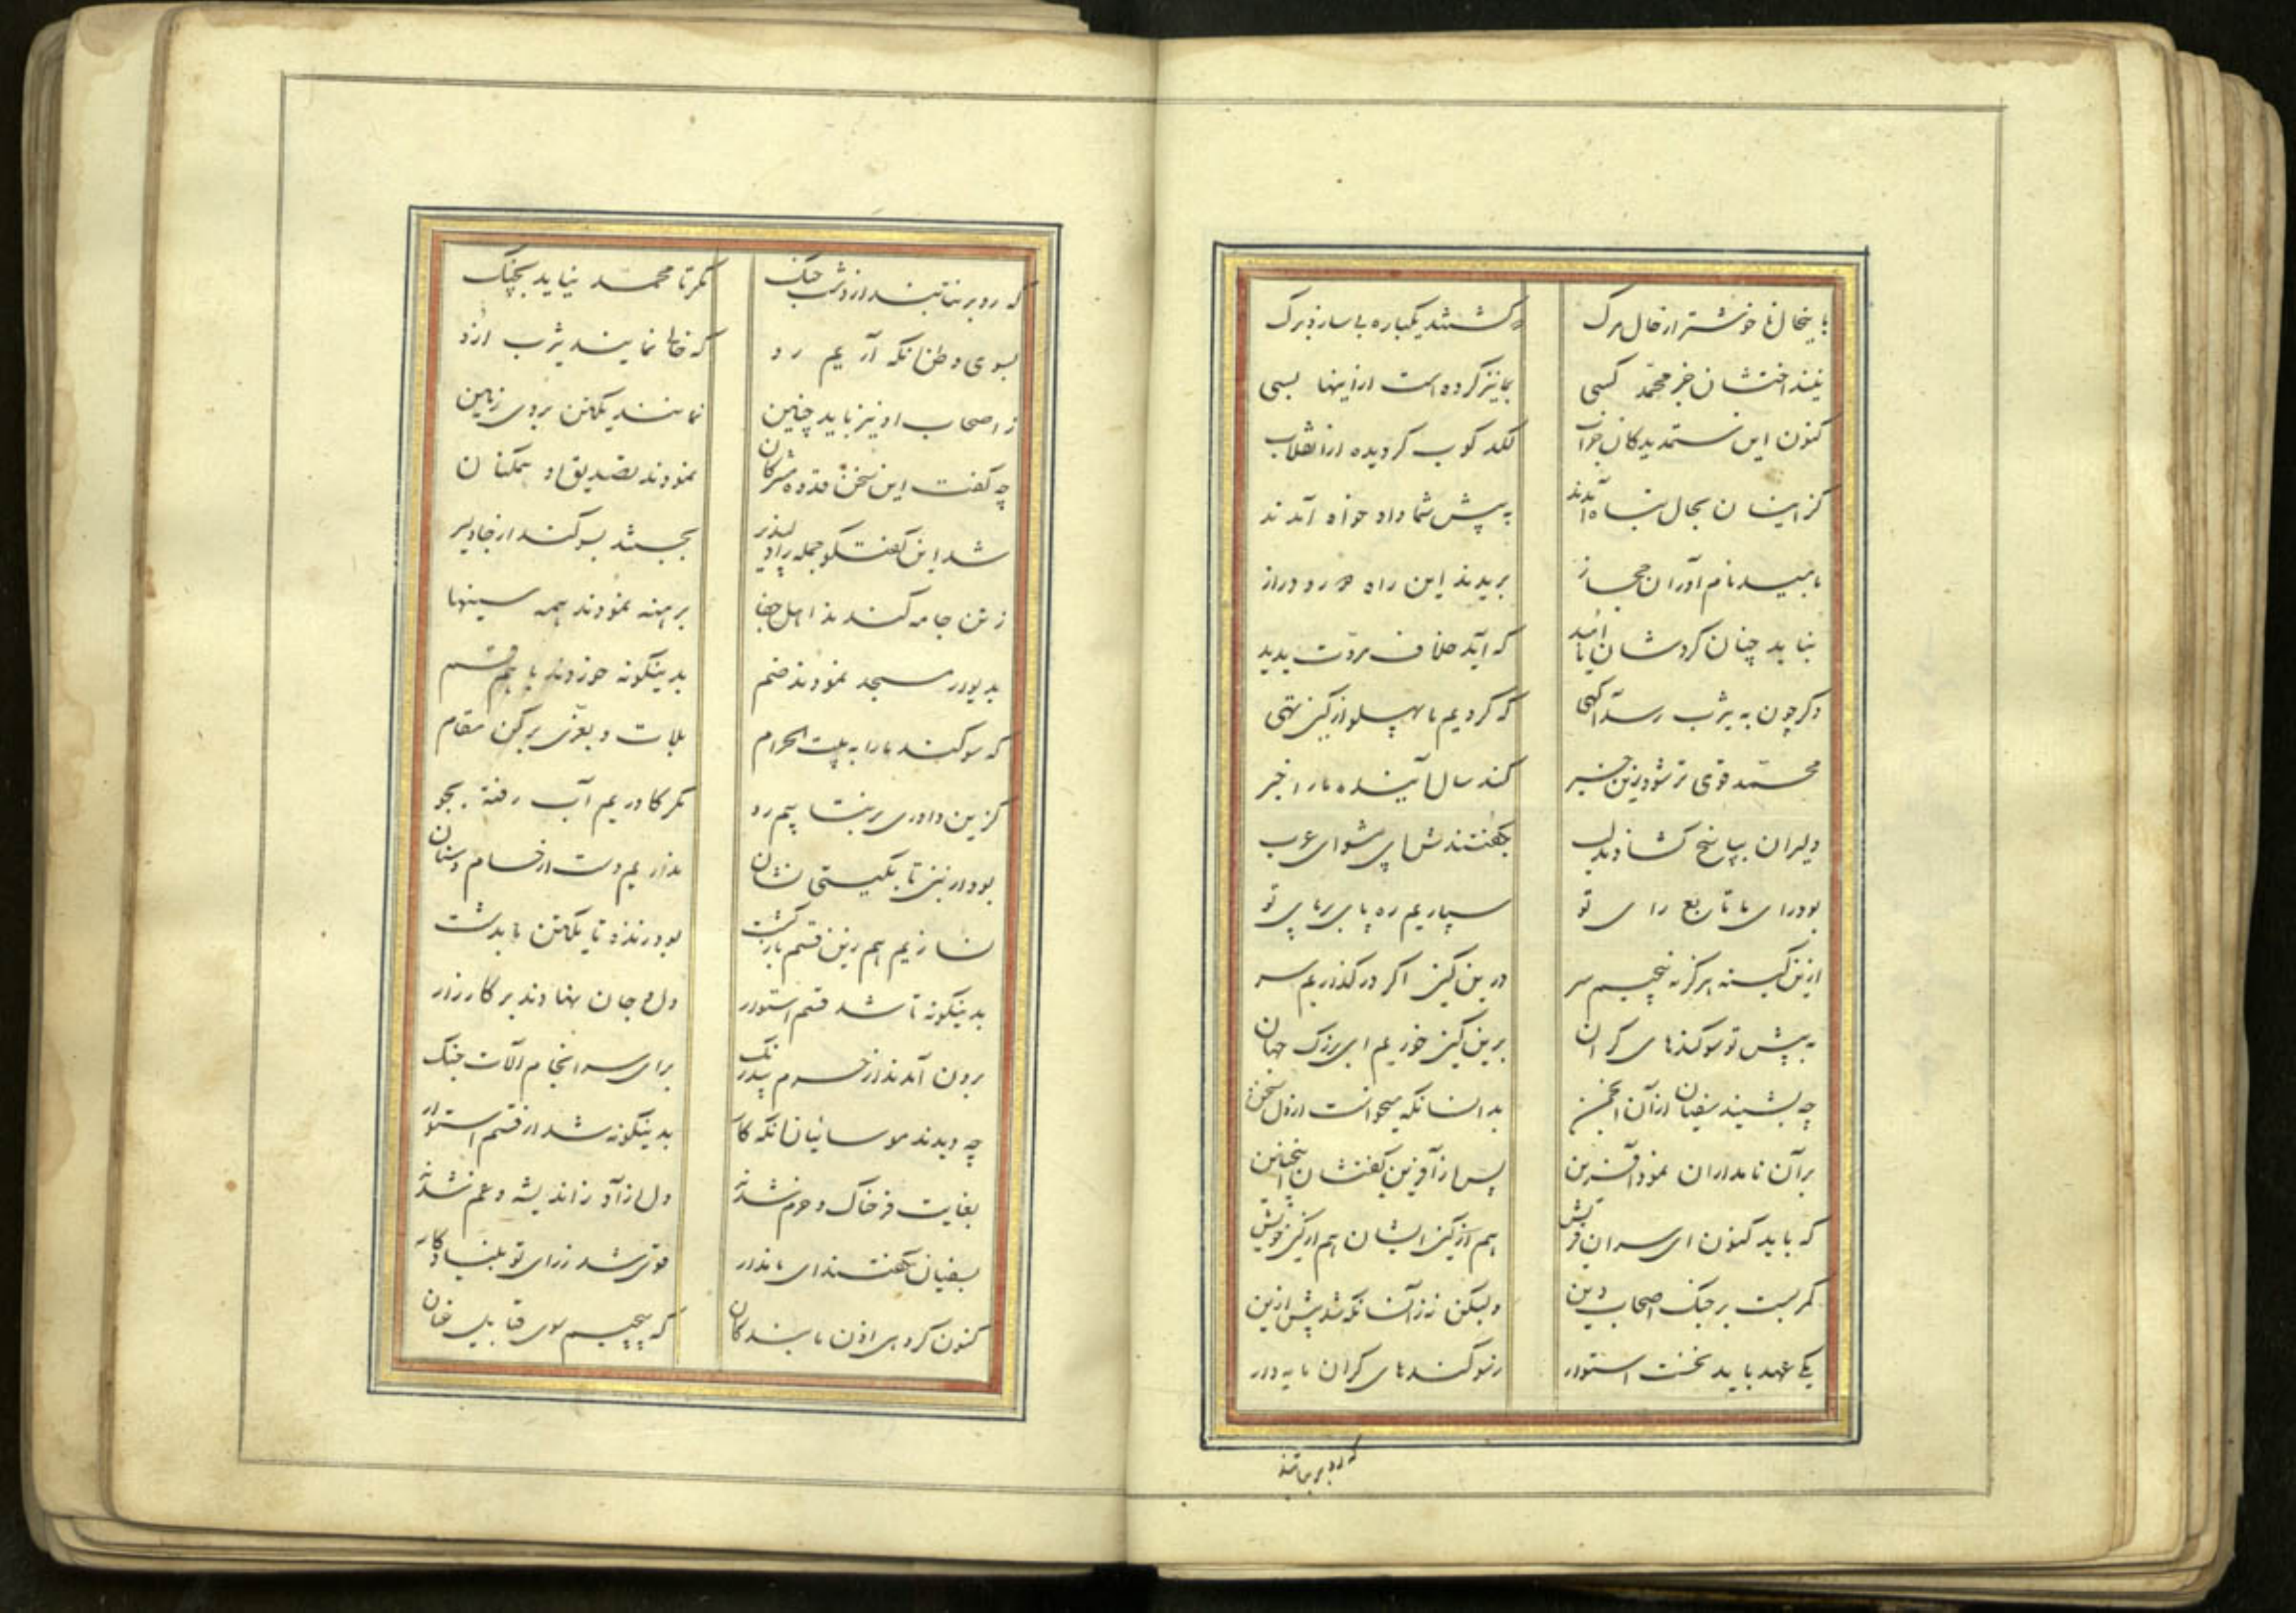 باینحال ناخوشتر از حال مرگ
که گشتند یکباره بی ساز و برگ
نینداختشان جز محمد کسی
بما نیز کرده است ازاینها بسی
کنون این ستمدیدکان خراب
لکد کوب کردیده از انقلاب
کز ایشان بحال تباه آمدند
به پیش شما داد خواه آمدند
بامید نام آوران حجاز
بریدند این راه دور و دراز
نباید چنان کردشان ناامید
که آید خلاف مروت پدید
دکر چون به یثرب رسد آکهی
که کردیم ما پهلو از کین تهی
محمد قوی تر شود زین خبر
کند سال آینده ما را خبر
دلیران بپاسخ کشادند لب
بگفتندش ای پیشوای عرب
بود رای ما تابع رای تو
سپاریم ره پای بر پای تو
ازین کینه هرگز نپیچیم سر
درین کین اکر در کذاریم سر
به پیش تو سوکندهای کران
برین کین خوریم ای بزرگ جهان
چه بشنید سفیان از آن انجمن
بدانسانکه میخواست از دل سخن
بر آن نامداران نمود آفرین
پس از آفرین گفتشان اینچنین
که باید کنون ای سران قریش
هم از کین ایشان هم از کین خویش
کمر بست بر جنگ اصحاب دین
ولیکن نه زآنسانکه شد پیش ازین
یکی عهد باید نخست استوار
ز سوکندهای کران مایه دار
که رو بر نتابند
که رو بر نتابند از دشت جنگ
مکر تا محمد نیاید بچنگ
بسوی وطن آنکه آریم رو
که خالی نمایند یثرب ازو
ز اصحاب او نیز باید چنین
نمانند یکتن بروی زمین
چه کفت این سخن قدوه مشرکان
نمودند تصدیق او همکنان
شد این گفتگو جمله را دلپذیر
بجستند بسوکند از جا دلیر
ز تن جامه کندند اهل جفا
برهنه نمودند همه سینها
به دیوار مسجد نمودند ضم
بدینکونه خوردند با هم قسم
که سوکند ما را به بیت الحرام
بلات و بعزی برکن مقام
کزین داوری بر نتابیم رو
مکر کاوریم آب رفته بجو
بود در نبی تا بکیتی نشان
نداریم دست از خسام و سنان
نسازیم هم زین قسم بازکشت
بود زنده تا یکتن ما بدشت
بدینکونه تا شد قسم استوار
دل و جان نهادند بر کارزار
برون آمدند از حرم بیدرنک
برای سرانجام آلات جنک
چه دیدند موسائیان آنکه کار
بدینکونه شد از قسم استوار
بغایت فرحناک و خرم شدند
دل آزاد ز اندیشه و غم شدند
بسفیان بگفتند ای نامدار
قوی شد ز رای تو بنیاد کار
کنون کر دهی اذن ما بندکان
که پیچیم سوی قبایل عنان